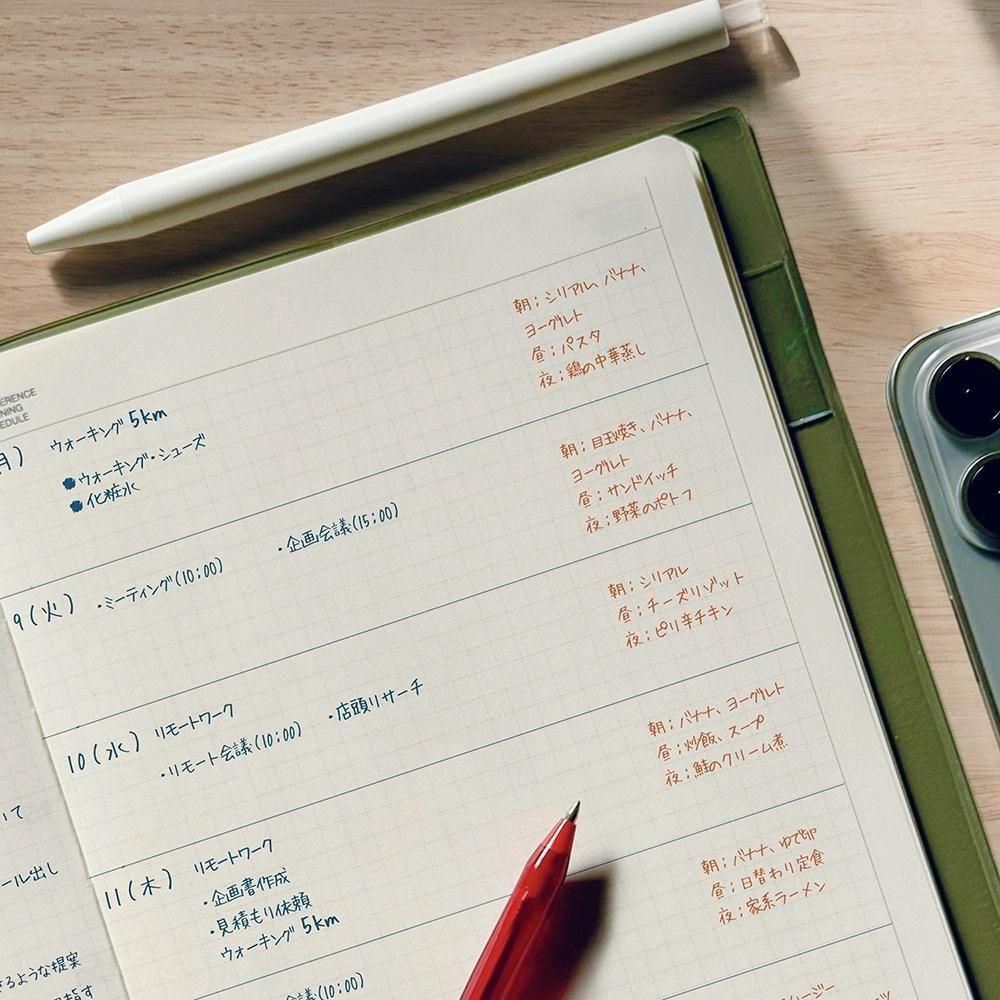 ERENCE
NING
EDULE
月) ウォーキング 5km
●ウォーキング・シューズ
●化粧水
朝;シリアル、バナナ、
ヨーグルト
昼;パスタ
夜;鶏の中華蒸し
9(火) ・ミーティング(10:00) ・企画会議(15:00)
朝;目玉焼き、バナナ、
ヨーグルト
昼;サンドイッチ
夜;野菜のポトフ
10(水) リモートワーク
・リモート会議(10:00) ・店頭リサーチ
朝;シリアル
昼;チーズリゾット
夜;ピリ辛チキン
11(木) リモートワーク
・企画書作成
・見積もり依頼
ウォーキング 5km
朝;バナナ、ヨーグルト
昼;炒飯、スープ
夜;鮭のクリーム煮
会議(10:00)
朝;バナナ、ゆで卵
昼;日替わり定食
夜;家系ラーメン
いて
ール出し
きるような提案
指す